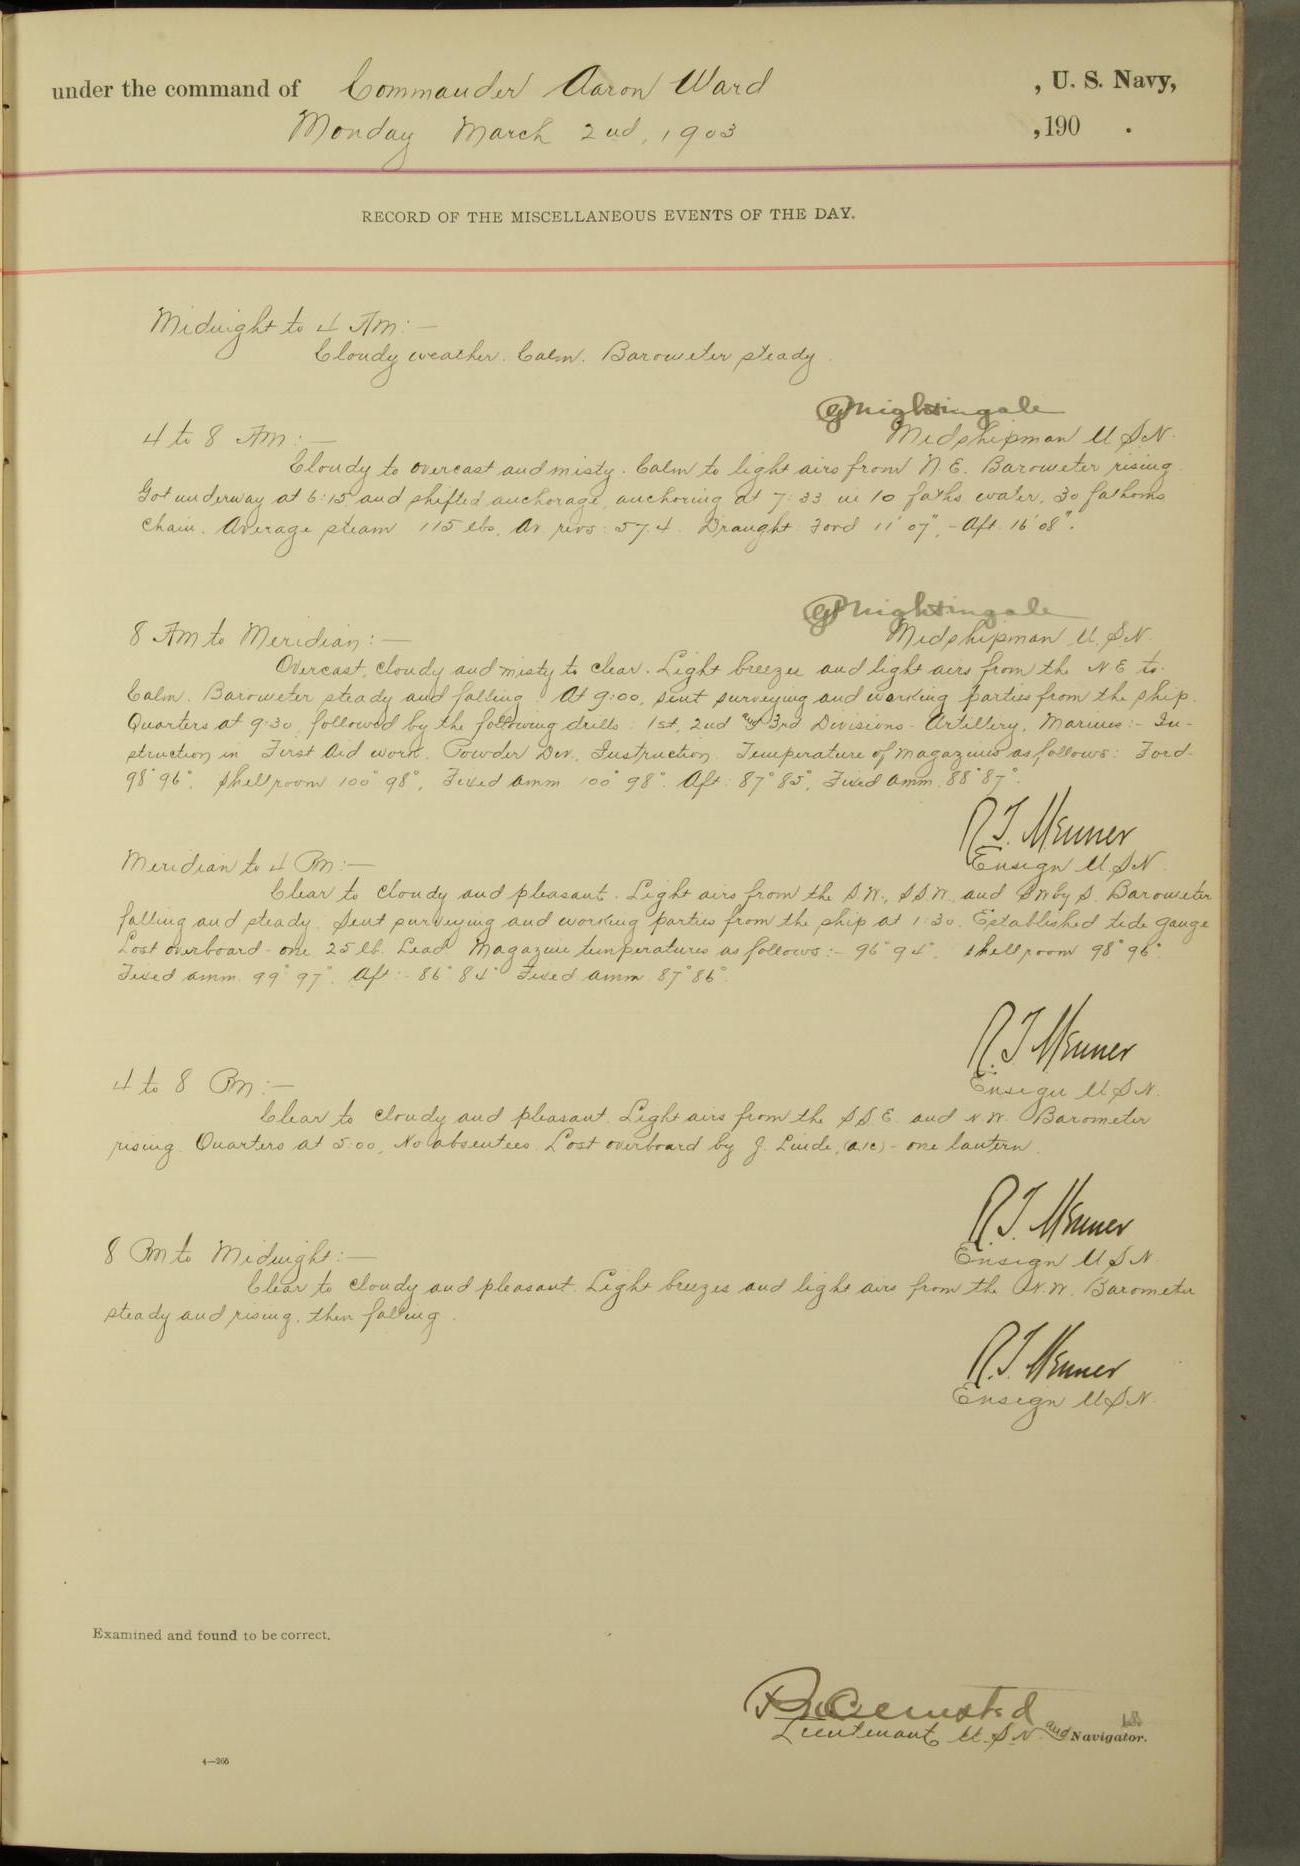 under the command of Commander Aaron Ward , U. S. Navy,
Monday March 2nd, 1903 , 190 .
RECORD OF THE MISCELLANEOUS EVENTS OF THE DAY.
Midnight to 4 AM:—
Cloudy weather. Calm. Barometer steady.
Nightingale
4 to 8 AM:— Midshipman U.S.N.
Cloudy to overcast and misty. Calm to light airs from N.E. Barometer rising.
Got underway at 6:15 and shifted anchorage, anchoring at 7:33 in 10 faths water, 30 fathoms
chain. Average steam 115 lbs, Av. revs. 57.4. Draught: Ford 11' 07", - Aft. 16' 08".
Nightingale
8 AM to Meridian:— Midshipman U.S.N.
Overcast, cloudy and misty to clear. Light breezes and light airs from the N E to
Calm. Barometer steady and falling. At 9:00, sent surveying and working parties from the ship.
Quarters at 9:30, followed by the following drills: 1st, 2nd and 3rd Divisions - Artillery, Marines:- In-
struction in First Aid work. Powder Div. Instruction. Temperature of magazines as follows: Ford.
98° 96°, Shell room 100° 98°, Fixed amm. 100° 98°. Aft: 87° 85°, Fixed Amm. 88° 87°.
R. T. Menner
Meridian to 4 PM:— Ensign U.S.N.
Clear to cloudy and pleasant. Light airs from the S.W., S.S.W., and SW by S. Barometer
falling and steady. Sent surveying and working parties from the ship at 1:30. Established tide gauge
Lost overboard - one 25 lb. Lead. Magazine temperatures as follows:- 96° 94°. Shell room 98° 96°.
Fixed amm. 99° 97°. Aft:- 86° 84° Fixed amm. 87° 86°
R. T. Menner
4 to 8 PM:— Ensign U.S.N.
Clear to cloudy and pleasant. Light airs from the S.S.E. and N.W. Barometer
rising. Quarters at 5:00, No absentees. Lost overboard by J. Linde, - one lantern.
R. T. Menner
8 PM to Midnight:— Ensign U.S.N.
Clear to cloudy and pleasant. Light breezes and light airs from the N.W. Barometer
steady and rising, then falling.
R. T. Menner
Ensign U.S.N.
Examined and found to be correct.
Lieutenant U.S.N. and Navigator.
4—266